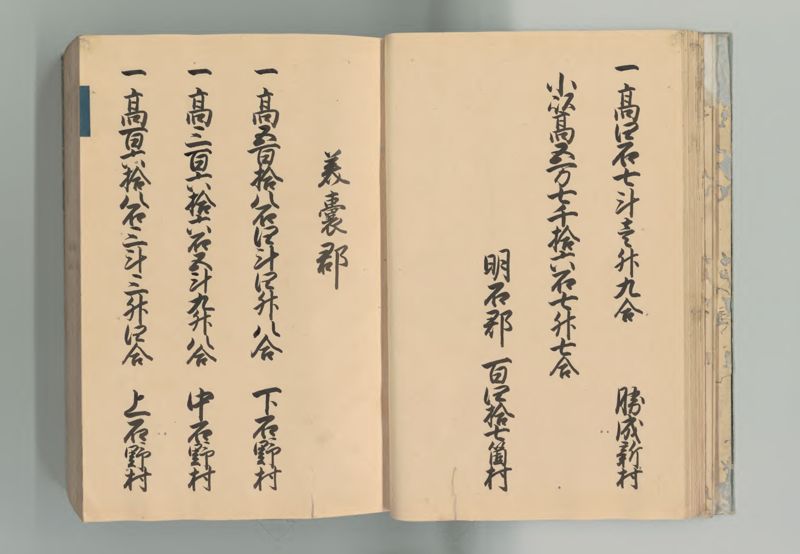 一高四石七斗壱升九合 勝成新村
小以高五万七千拾六石七升七合
明石郡 百四拾七箇村
美嚢郡
一高五百拾八石四斗四升八合 下石野村
一高三百六拾六石五斗九升八合 中石野村
一高百六拾八石三斗三升四合 上石野村